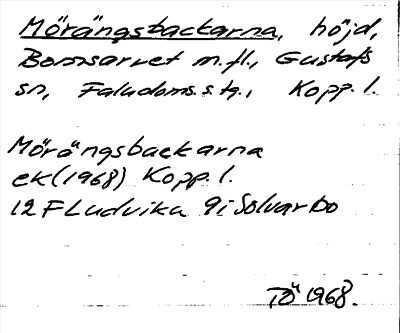 Mörängsbackarna, höjd,
Bomsarvet m.fl., Gustafs
sn, Faludoms. s. tg., Kopp. l.
Mörängsbackarna
ek (1968) Kopp. l.
12 F Ludvika 9i Solvarbo
TÖ 1968.